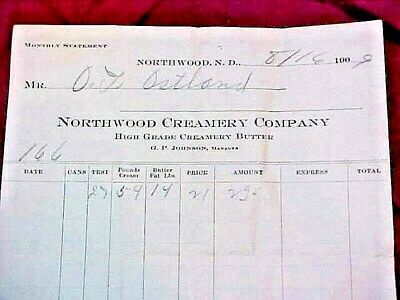 MONTHLY STATEMENT
NORTHWOOD, N. D., 8/16 1909
MR. O. T. Ostlond
NORTHWOOD CREAMERY COMPANY
HIGH GRADE CREAMERY BUTTER
G. P. JOHNSON, MANAGER
166
DATE CANS TEST Pounds Cream Butter Fat Lbs PRICE AMOUNT EXPRESS TOTAL
27 54 14 21 295